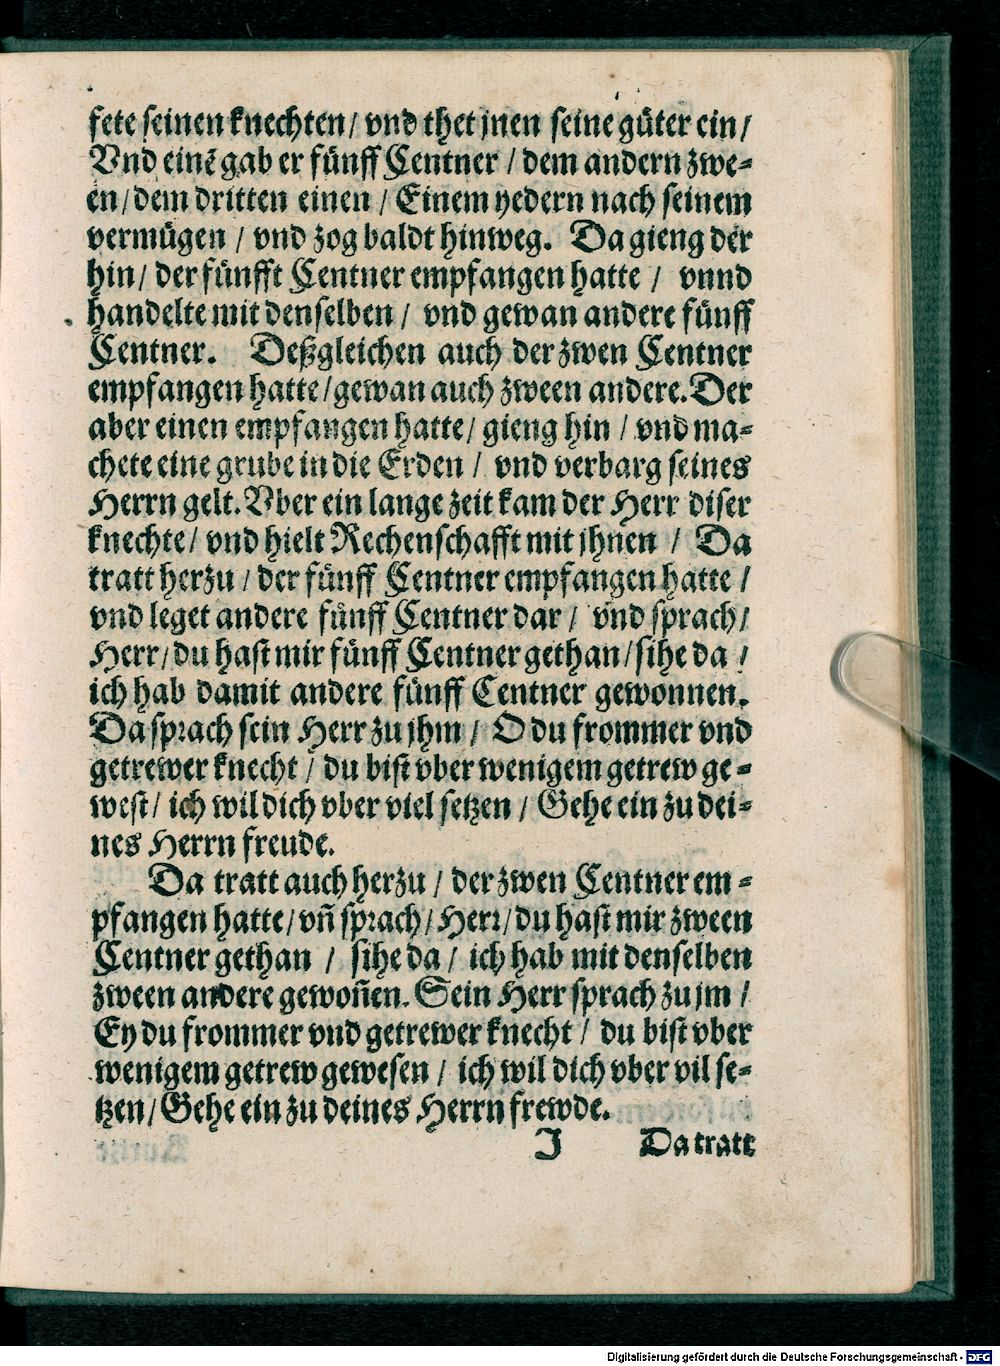 fete seinen knechten / vnd thet jnen seine güter ein /
Vnd einẽ gab er fünff Centner / dem andern zwe-
en / dem dritten einen / Einem yedern nach seinem
vermügen / vnd zog baldt hinweg. Da gieng der
hin / der fünfft Centner empfangen hatte / vnnd
handelte mit denselben / vnd gewan andere fünff
Centner. Deßgleichen auch der zwen Centner
empfangen hatte / gewan auch zween andere. Der
aber einen empfangen hatte / gieng hin / vnd ma-
chete eine grube in die Erden / vnd verbarg seines
Herrn gelt. Vber ein lange zeit kam der Herr diser
knechte / vnd hielt Rechenschafft mit jhnen / Da
tratt herzu / der fünff Centner empfangen hatte /
vnd leget andere fünff Centner dar / vnd sprach /
Herr / du hast mir fünff Centner gethan / sihe da /
ich hab damit andere fünff Centner gewonnen.
Da sprach sein Herr zu jhm / O du frommer vnd
getrewer knecht / du bist vber wenigem getrew ge-
west / ich wil dich vber viel setzen / Gehe ein zu dei-
nes Herrn freude.
Da tratt auch herzu / der zwen Centner em-
pfangen hatte / vñ sprach / Herr / du hast mir zween
Centner gethan / sihe da / ich hab mit denselben
zween andere gewoñen. Sein Herr sprach zu jm /
Ey du frommer vnd getrewer knecht / du bist vber
wenigem getrew gewesen / ich wil dich vber vil se-
tzen / Gehe ein zu deines Herrn frewde.
I Da tratt
Digitalisierung gefördert durch die Deutsche Forschungsgemeinschaft - DFG